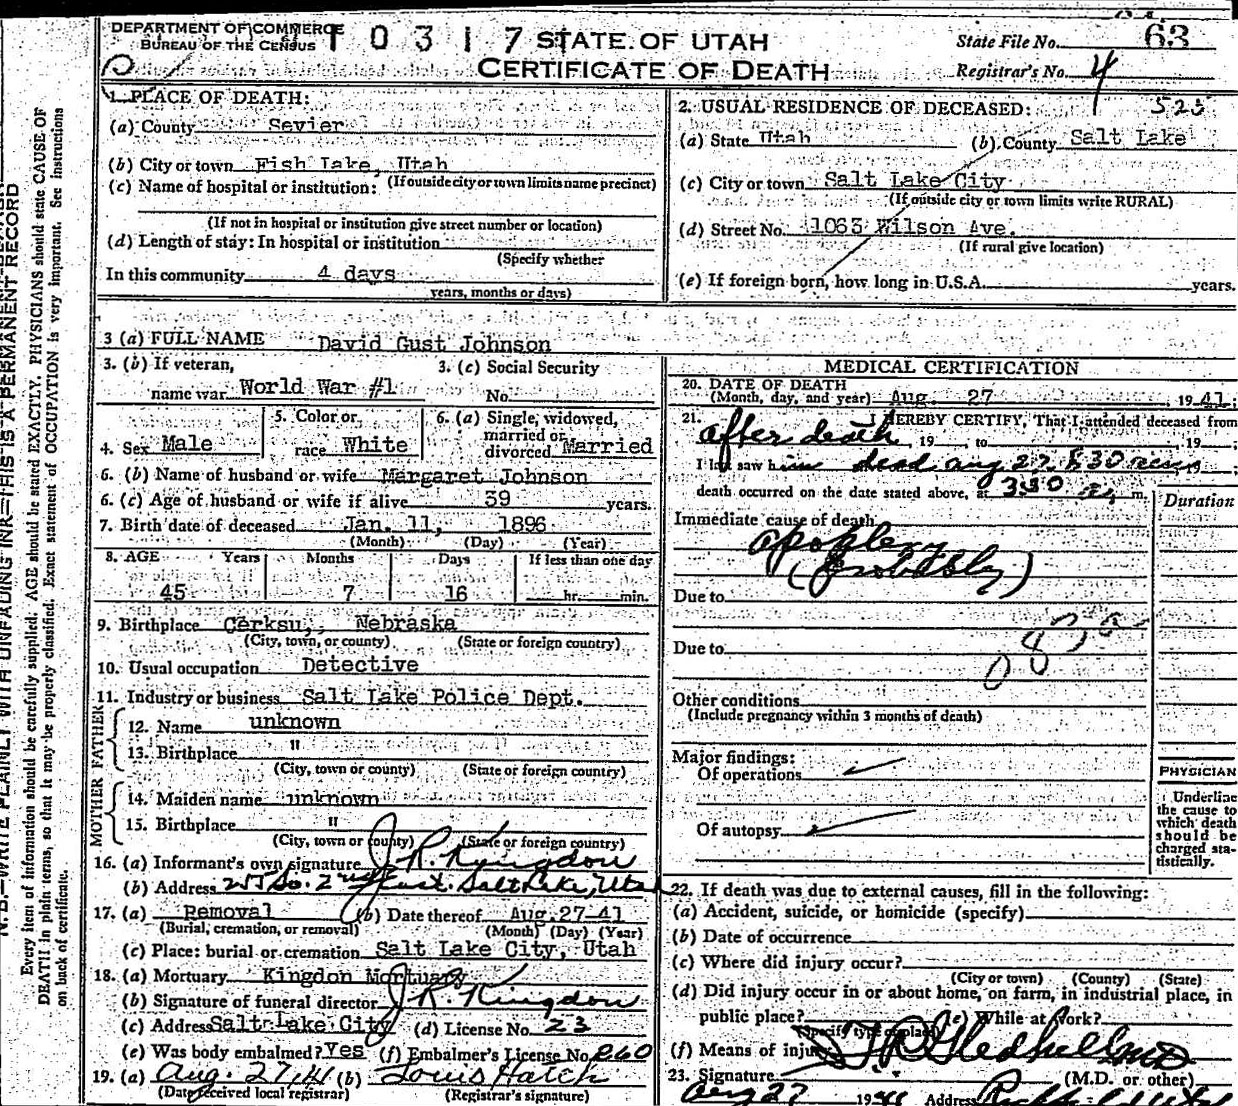 DEPARTMENT OF COMMERCE
BUREAU OF THE CENSUS
1 0 3 1 7 STATE OF UTAH
CERTIFICATE OF DEATH
State File No. 63
Registrar's No. 4
1. PLACE OF DEATH:
(a) County Sevier
(b) City or town Fish Lake, Utah
(If outside city or town limits name precinct)
(c) Name of hospital or institution:
(If not in hospital or institution give street number or location)
(d) Length of stay: In hospital or institution
(Specify whether
In this community 4 days
years, months or days)
2. USUAL RESIDENCE OF DECEASED: 525
(a) State Utah (b) County Salt Lake
(c) City or town Salt Lake City
(If outside city or town limits write RURAL)
(d) Street No. 1063 Wilson Ave.
(If rural give location)
(e) If foreign born, how long in U.S.A. years.
3 (a) FULL NAME David Gust Johnson
3. (b) If veteran,
name war World War #1
3. (c) Social Security
No.
4. Sex Male
5. Color or
race White
6. (a) Single, widowed,
married or
divorced Married
6. (b) Name of husband or wife Margaret Johnson
6. (c) Age of husband or wife if alive 39 years.
7. Birth date of deceased Jan. 11, 1896
(Month) (Day) (Year)
8. AGE Years Months Days If less than one day
45 7 16 hr. min.
9. Birthplace Cerksu, Nebraska
(City, town, or county) (State or foreign country)
10. Usual occupation Detective
11. Industry or business Salt Lake Police Dept.
FATHER
12. Name unknown
13. Birthplace "
(City, town or county) (State or foreign country)
MOTHER
14. Maiden name unknown
15. Birthplace "
(City, town or county) (State or foreign country)
16. (a) Informant's own signature J. R. Kingdon
(b) Address So. 2nd East. Salt Lake, Utah
17. (a) Removal (b) Date thereof Aug. 27-41
(Burial, cremation, or removal) (Month) (Day) (Year)
(c) Place: burial or cremation Salt Lake City, Utah
18. (a) Mortuary Kingdon Mortuary
(b) Signature of funeral director J. R. Kingdon
(c) Address Salt Lake City (d) License No. 23
(e) Was body embalmed? Yes (f) Embalmer's License No. 260
19. (a) Aug. 27, 41 (b) Louis Hatch
(Date received local registrar) (Registrar's signature)
MEDICAL CERTIFICATION
20. DATE OF DEATH
(Month, day, and year) Aug. 27, 1941;
21. I HEREBY CERTIFY, That I attended deceased from
after death, 19 , to 19 ;
I last saw him dead Aug 27 8 30 ;
death occurred on the date stated above, at 3:30 a. m.
Duration
Immediate cause of death
apoplexy
(probably)
Due to
Due to
Other conditions
(Include pregnancy within 3 months of death)
Major findings:
Of operations
Of autopsy
PHYSICIAN
Underline
the cause to
which death
should be
charged sta-
tistically.
22. If death was due to external causes, fill in the following:
(a) Accident, suicide, or homicide (specify)
(b) Date of occurrence
(c) Where did injury occur?
(City or town) (County) (State)
(d) Did injury occur in or about home, on farm, in industrial place, in
public place? (e) While at work?
(Specify type of place)
(f) Means of injury
23. Signature T. R. Gledhill MD
(M.D. or other)
Aug 27 1941 Address
N.B.—WRITE PLAINLY WITH UNFADING INK—THIS IS A PERMANENT RECORD
Every item of information should be carefully supplied. AGE should be stated EXACTLY. PHYSICIANS should state CAUSE OF
DEATH in plain terms, so that it may be properly classified. Exact statement of OCCUPATION is very important. See instructions
on back of certificate.